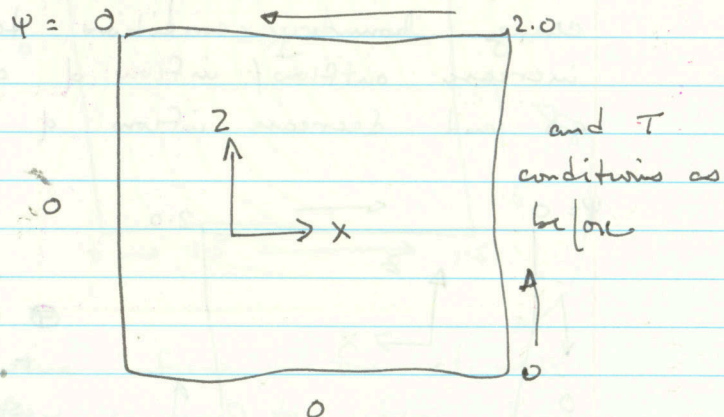 ψ = 0 2.0
Z
and T
conditions as
before
0
X
0
0